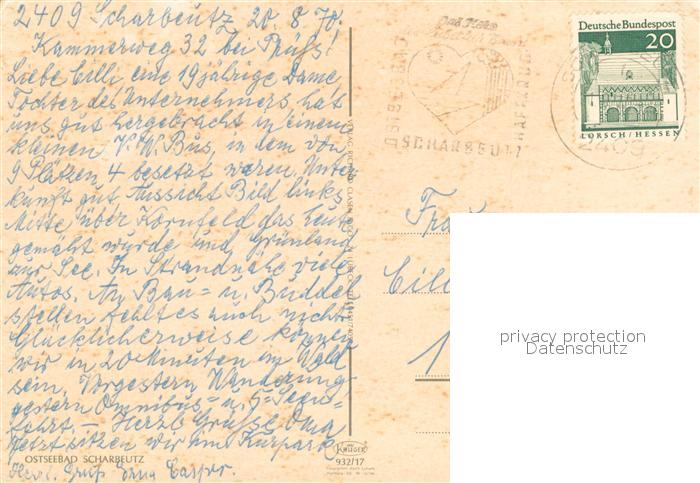 2409 Scharbeutz 20.8.70.
Kammerweg 32 bei Prüß!
Liebe Cilli eine 19jährige Dame
Tochter des Unternehmers hat
uns gut hergebracht in einem
kleinen V.W. Bus, in dem von
9 Plätzen 4 besetzt waren. Unter
kunft gut Aussicht Bild links
Mitte über Kornfeld das heute
gemäht wurde und Grünland
zur See. In Strandnähe viele
Autos. An Bau= u. Buddel
stellen fehlt es auch nicht.
Glücklicherweise können
wir in 20 Minuten im Wald
sein. Vorgestern Wanderung
gestern Omnibus= u. 5-Seen=
fahrt. — Herzl. Grüße Oma
Jetzt sitzen wir am Kurpark
OSTSEEBAD SCHARBEUTZ
Herzl. Gruß Erna
KRÜGER
932/17
SCHARBEUTZ
2409
Deutsche Bundespost
20
LORSCH/HESSEN
Frau
Cill
1
privacy protection
Datenschutz